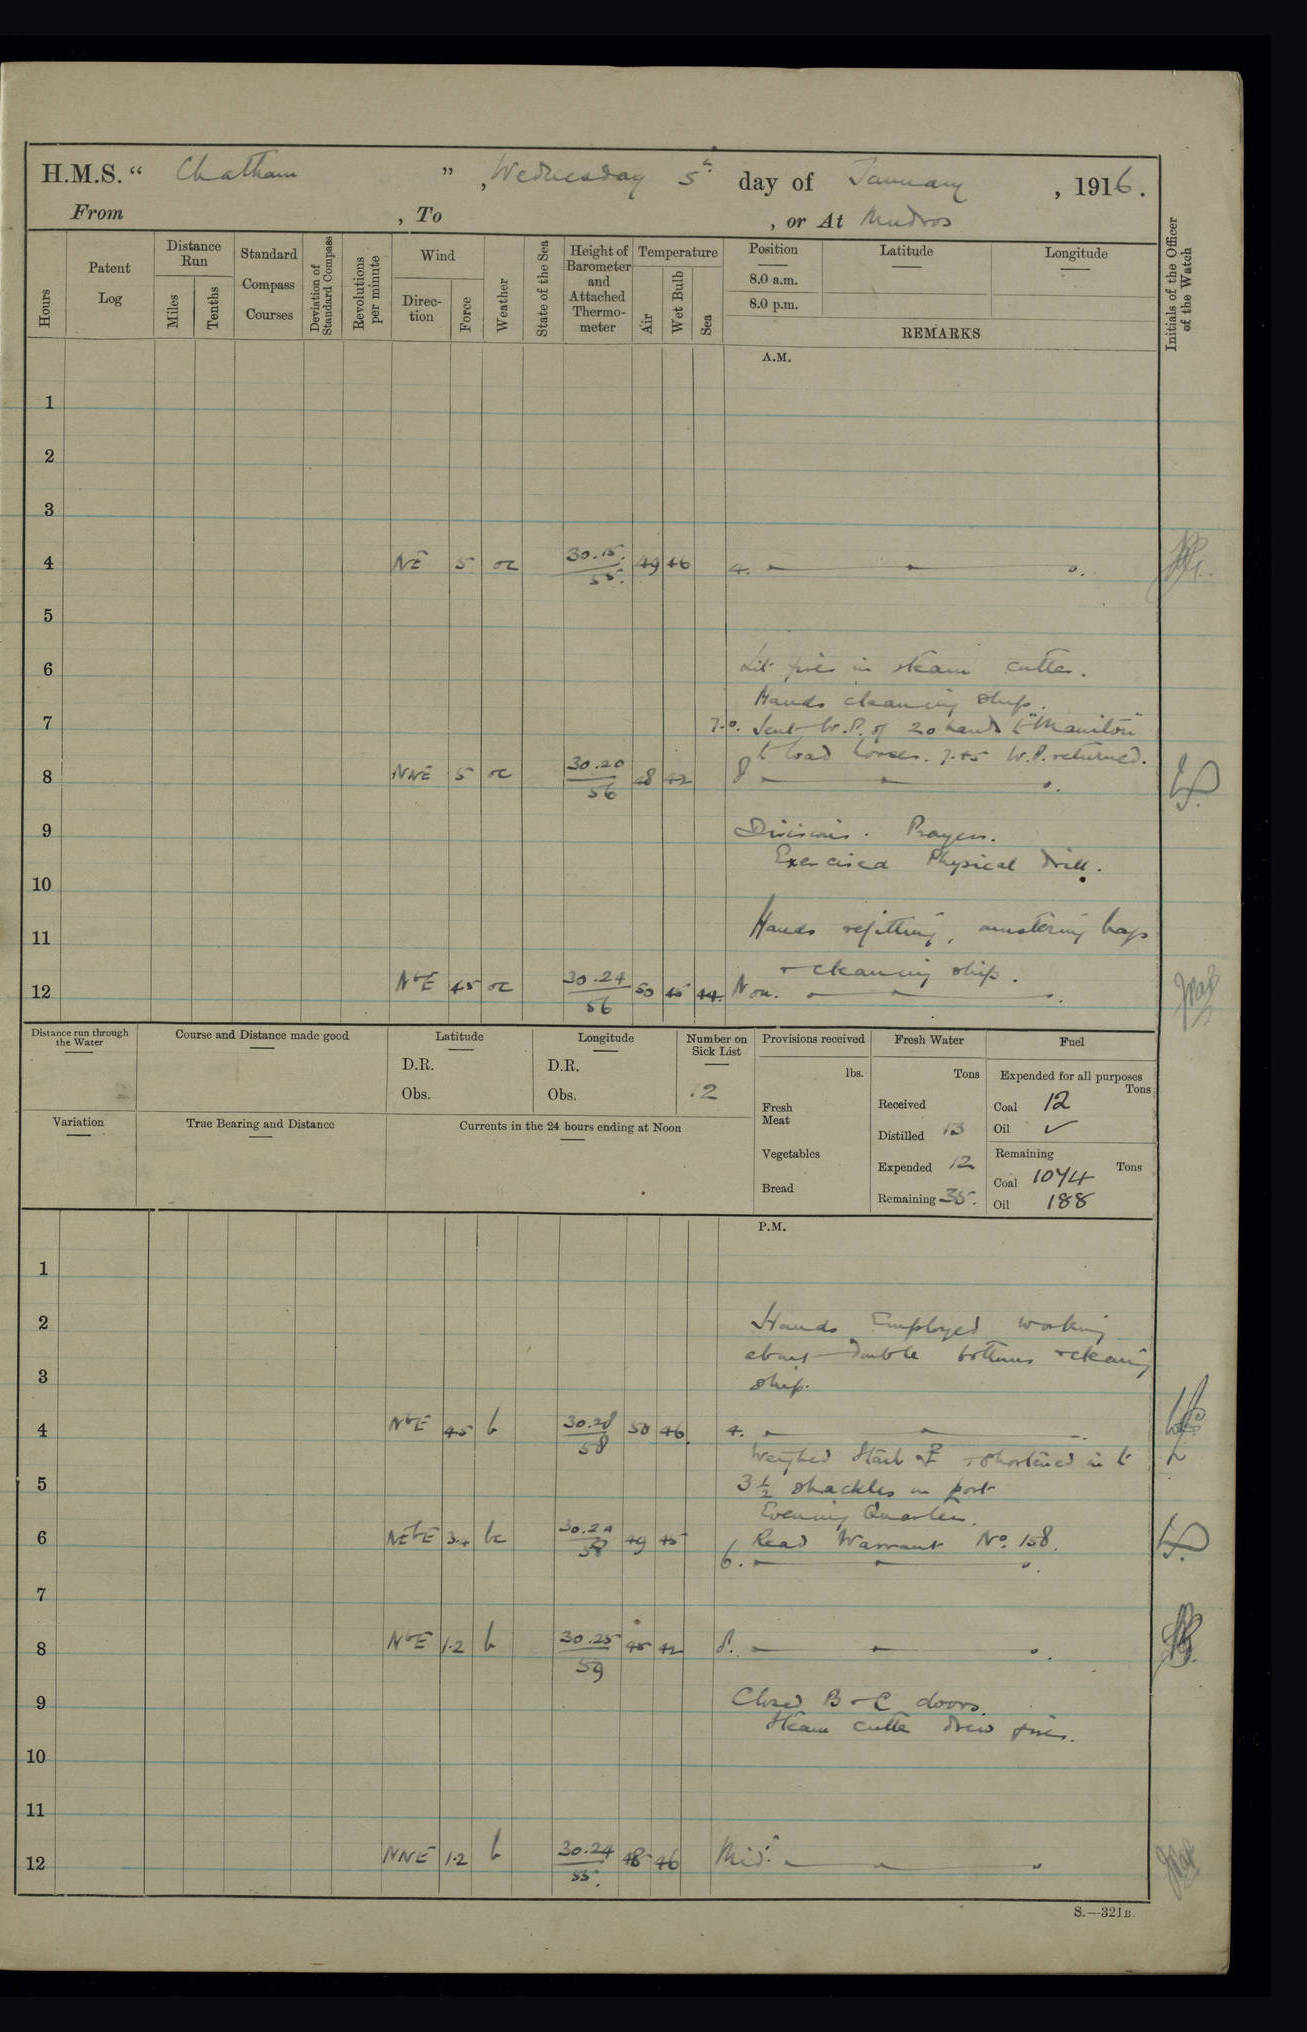 H.M.S. " Chatham ", Wednesday 5th day of January, 1916.
From , To , or At Mudros
Hours
Patent Log
Distance Run
Miles
Tenths
Standard Compass Courses
Deviation of Standard Compass
Revolutions per minute
Wind
Direction
Force
Weather
State of the Sea
Height of Barometer and Attached Thermometer
Temperature
Air
Wet Bulb
Sea
Position Latitude Longitude
8.0 a.m.
8.0 p.m.
REMARKS
Initials of the Officer of the Watch
A.M.
1
2
3
4 NE 5 oc 30.15 55 49 46 4.
5
6 Lit fires in steam cutter.
Hands cleaning ship.
7 7.0. Sent W.P. of 20 hands to "Manitou"
to load horses. 7.45 W.P. returned.
8 NNE 5 oc 30.20 56 48 42 8
9 Divisions. Prayers.
Exercised Physical drill.
10
11 Hands refitting, mustering bags
+ cleaning ship.
12 NbE 4.5 oc 30.24 56 50 45 44 Noon.
Distance run through the Water
Course and Distance made good
Latitude
D.R.
Obs.
Longitude
D.R.
Obs.
Number on Sick List
12
Provisions received
lbs.
Fresh Meat
Vegetables
Bread
Fresh Water
Tons
Received
Distilled 13
Expended 12
Remaining 35.
Fuel
Expended for all purposes
Tons
Coal 12
Oil ✓
Remaining
Tons
Coal 1074
Oil 188
Variation
True Bearing and Distance
Currents in the 24 hours ending at Noon
P.M.
1
2 Hands Employed working
about double bottoms + cleaning
3 ship.
4 NbE 4.5 b 30.28 58 50 46 4.
Weighed Starb + shortened in to
5 3 1/2 shackles on port
Evening Quarters.
6 NEbE 3.4 bc 58 49 45 Read Warrant No. 158.
6.
7
8 NbE 1.2 b 30.25 59 45 42 8.
9 Closed B + C doors.
Steam cutter drew fires.
10
11
12 NNE 1.2 b 30.24 55. 48 46 Midt.
S.—321B.